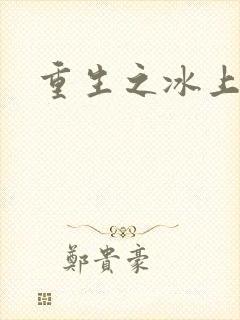 重生之冰上
鄭貴豪